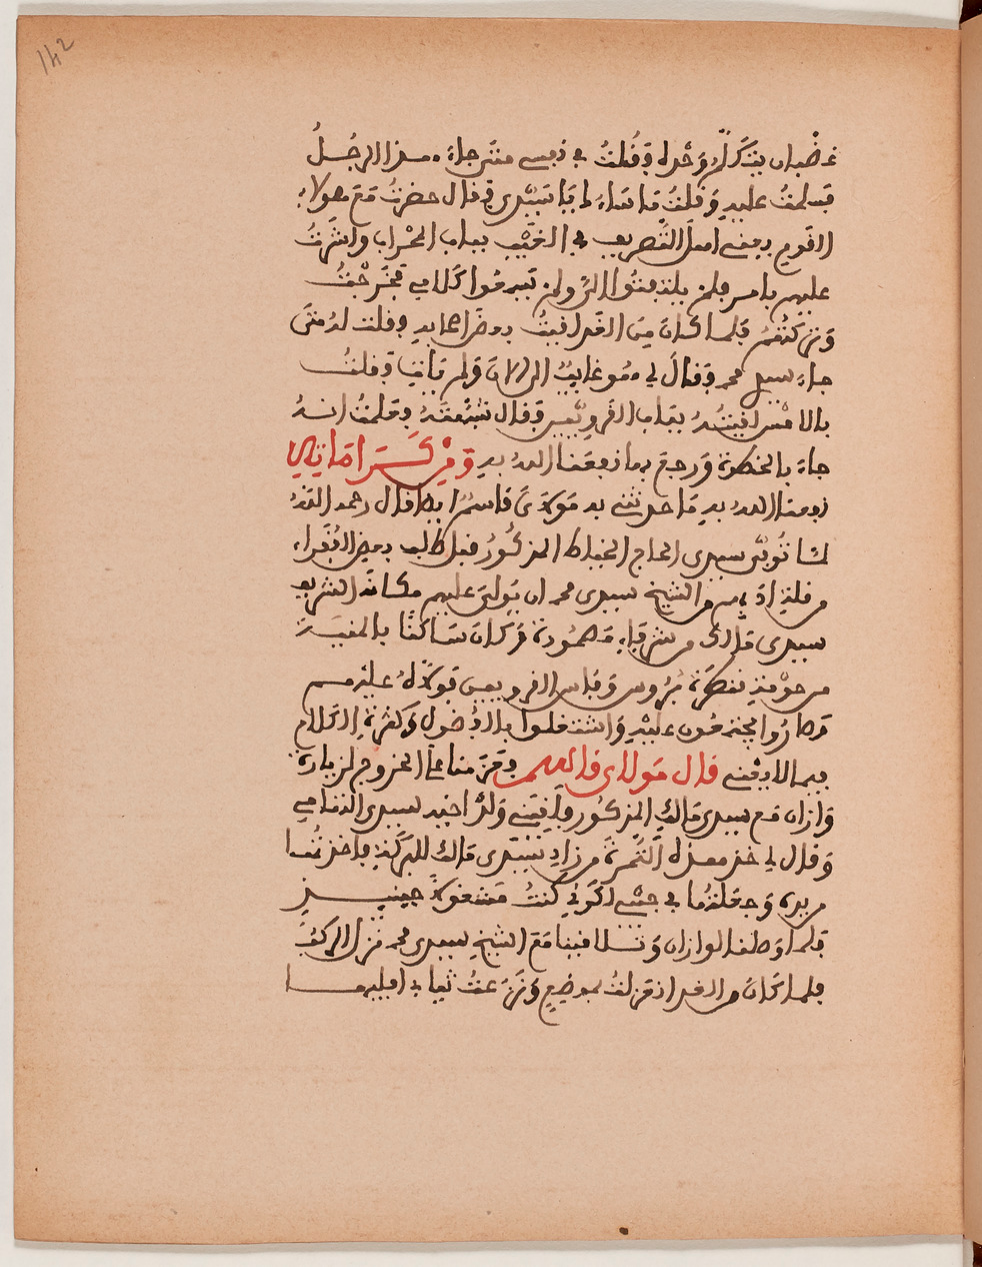 142
غضبان يتكلم وحده فقلت في نفسي متى جاء هذا الرجل
فسلمت عليه وقلت ما شاء لنا يا سيدي فقال حضرت مع هولاء
القوم يعني اهل التصريف في الغيب بباب المحراب واشرت
عليهم بامر فلم يلتفتوا الي ولم يسمعوا كلامي فخرجت
وتركتهم فلما كان من الغد لقيت بعض اصحابه فقلت له متى
جاء سيدي محمد فقال لي هو غايب الى الان ولم يات فقلت
بالامس لقيته بباب القرويين فقال نشهته فعلمت انه
جاء بالخطوة ورجع بها نفعنا الله به ومن كراماته
نفعنا الله به ما حدثني به مولاي قاسم ايضا قال رحمه الله
لما توفي سيدي الحاج الخياط المذكور قبل طلب بعض الفقراء
من تلامذته من الشيخ سيدي محمد ان يولي عليهم مكانه الشريف
سيدي مالك من شرفاء مصمودة وكان ساكنا بالمنية
من حومة قنطرة بروس وفاس القرويين فولاه عليهم
فصاروا يجتمعون عليه واشتغلوا بالفضول وكثرة الكلام
فيما لا يعني قال مولاي قاسم فعزمنا على الخروج لزيارة
وازان مع سيدي مالك المذكور فلقيني ولد اخيه سيدي التهامي
وقال لي خذ هذه التمرة من زاد سيدي مالك للبركة فاخذتها
من يده وجعلتها في جيبي لكوني كنت مشغولا حينيذ
فلما وصلنا لوازان وتلاقينا مع الشيخ سيدي محمد نزل المركب
فلما كان من الغد انعزلت بموضع ونزعت ثيابي افليها